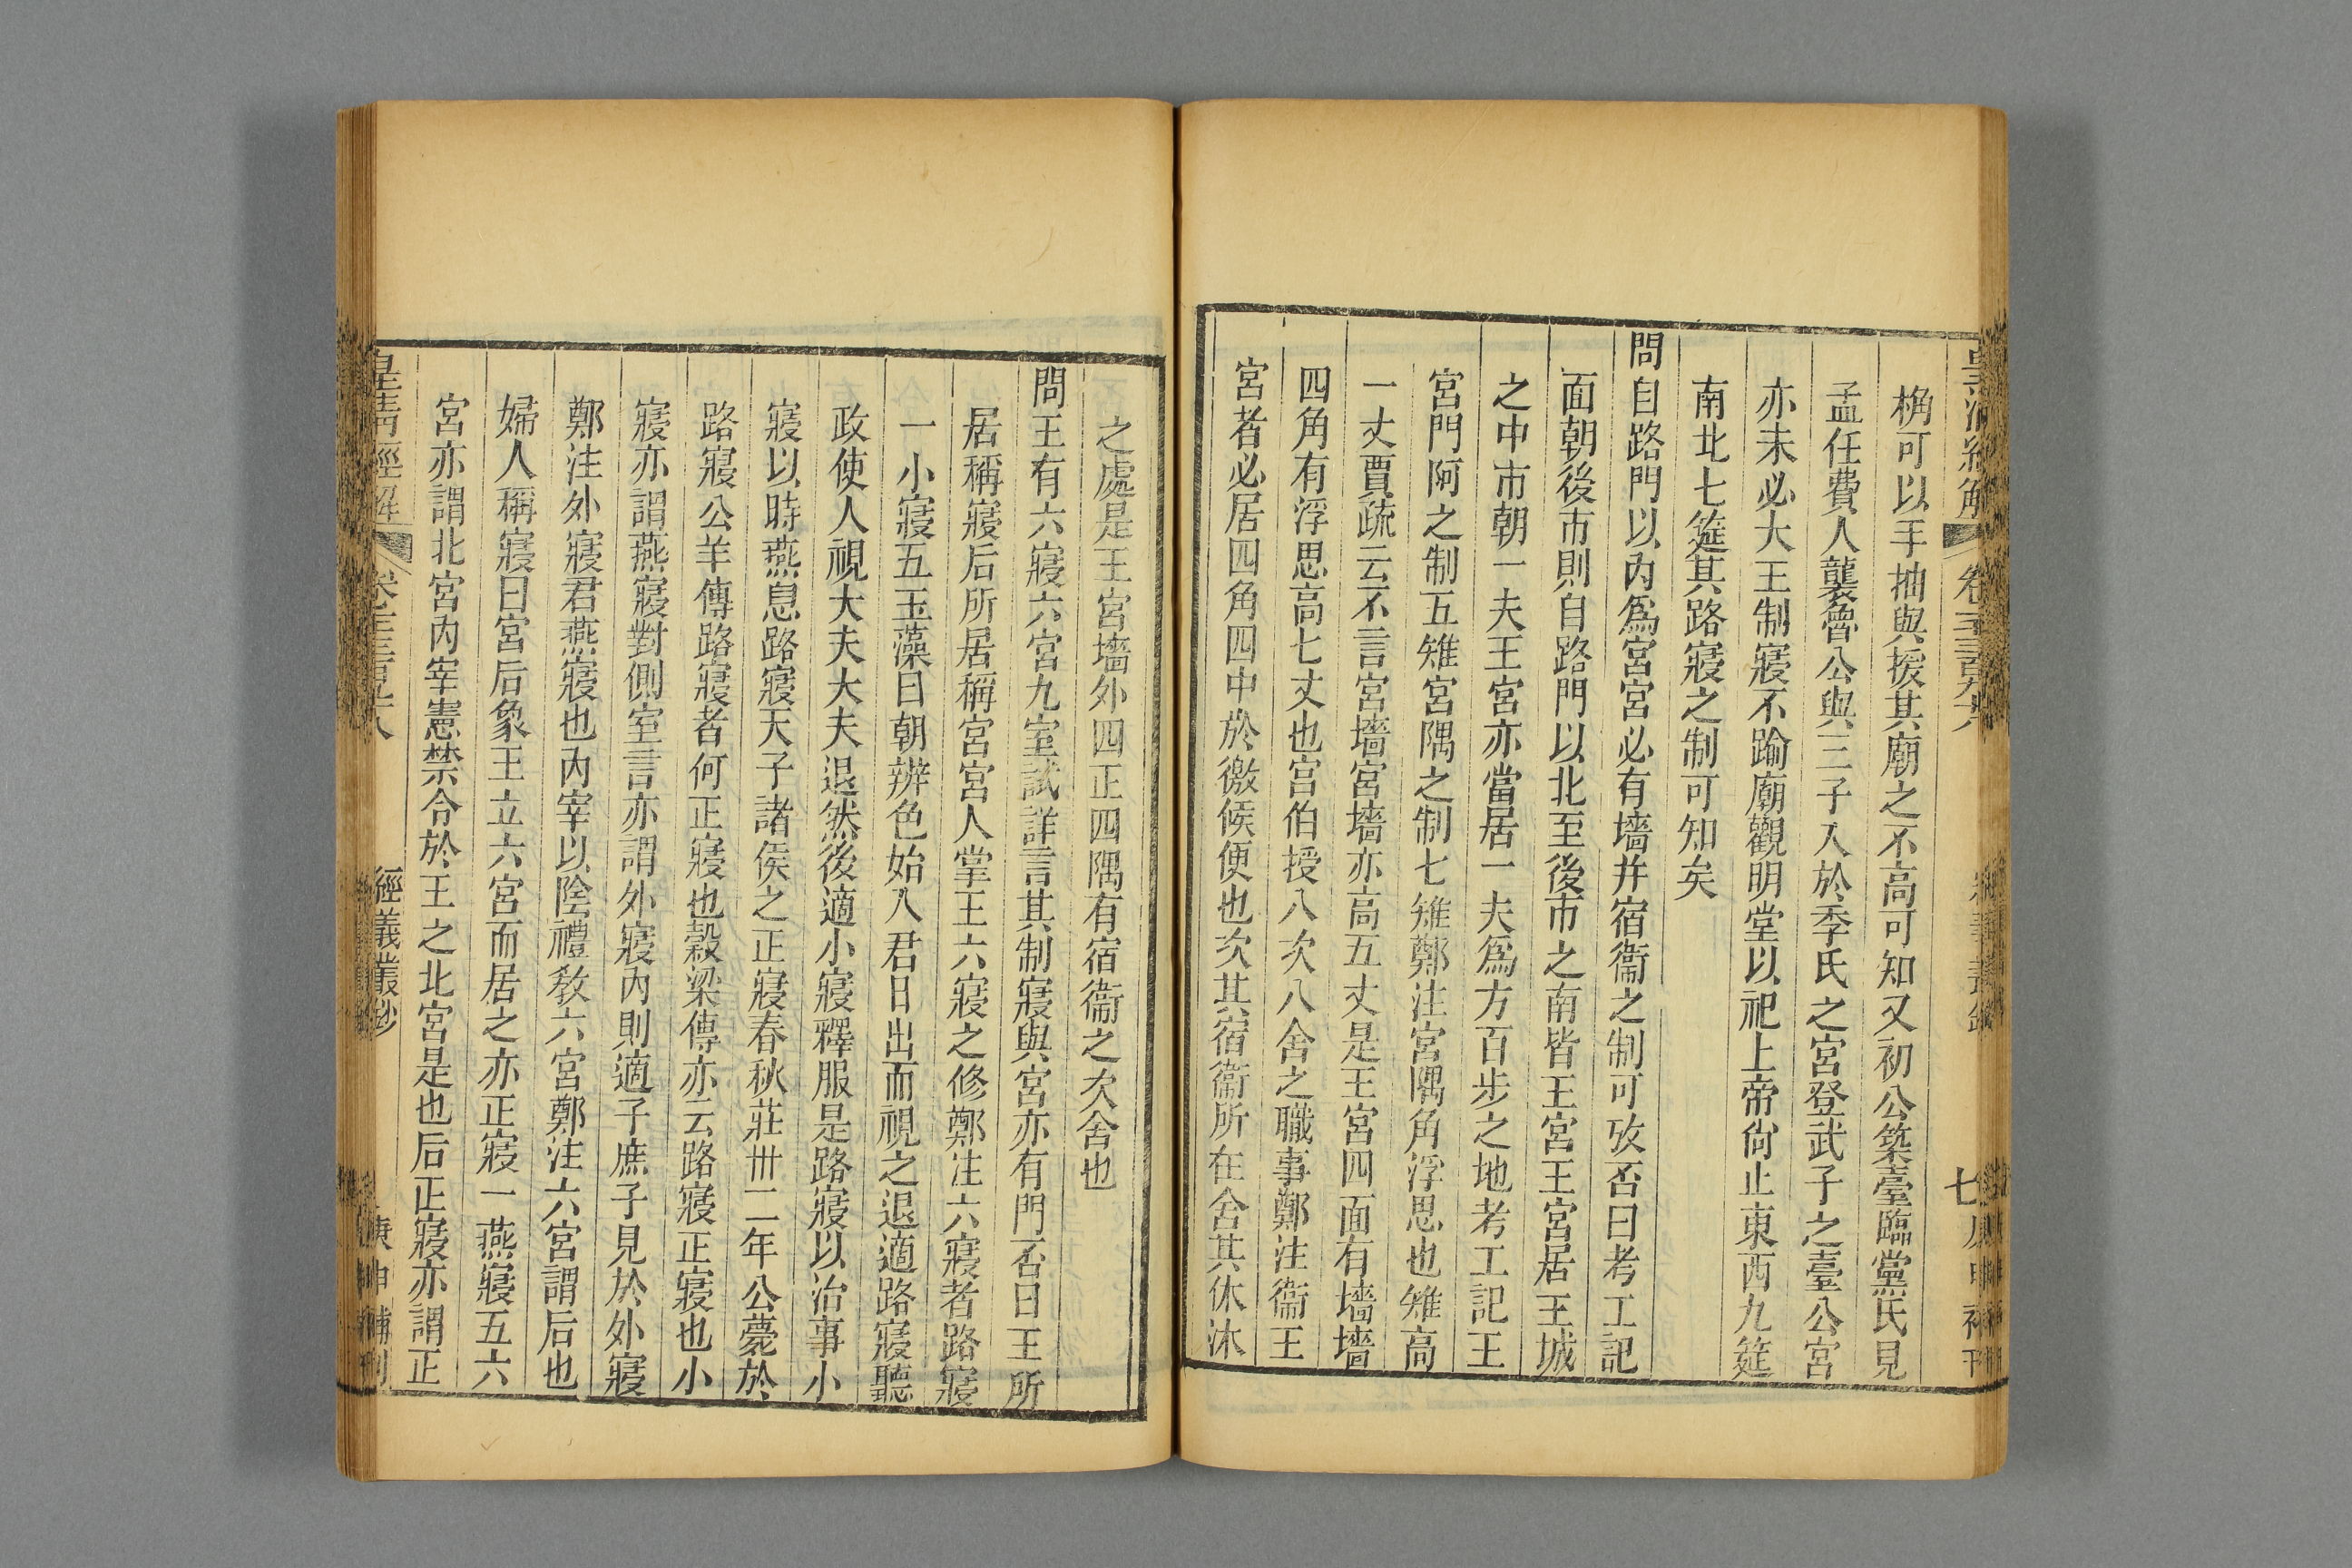 桷可以手抽與援其廟之不高可知又初公築臺臨黨氏見
孟任費人襲魯公與三子入於季氏之宮登武子之臺公宮
亦未必大王制寢不踰廟觀明堂以祀上帝尙止東西九筵
南北七筵其路寢之制可知矣
問自路門以內爲宮宮必有墻并宿衞之制可攷否曰考工記
面朝後市則自路門以北至後市之南皆王宮王宮居王城
之中市朝一夫王宮亦當居一夫爲方百步之地考工記王
宮門阿之制五雉宮隅之制七雉鄭注宮隅角浮思也雉高
一丈賈疏云不言宮墻宮墻亦高五丈是王宮四面有墻墻
四角有浮思高七丈也宮伯授八次八舍之職事鄭注衞王
宮者必居四角四中於徼候便也次其宿衞所在舍其休沐
七
之處是王宮墻外四正四隅有宿衞之次舍也
問王有六寢六宮九室試詳言其制寢與宮亦有門否曰王所
居稱寢后所居稱宮宮人掌王六寢之修鄭注六寢者路寢
一小寢五玉藻曰朝辨色始入君日出而視之退適路寢聽
政使人視大夫大夫退然後適小寢釋服是路寢以治事小
寢以時燕息路寢天子諸侯之正寢春秋莊卅二年公薨於
路寢公羊傳路寢者何正寢也穀梁傳亦云路寢正寢也小
寢亦謂燕寢對側室言亦謂外寢內則適子庶子見於外寢
鄭注外寢君燕寢也內宰以陰禮敎六宮鄭注六宮謂后也
婦人稱寢曰宮后象王立六宮而居之亦正寢一燕寢五六
宮亦謂北宮內宰憲禁令於王之北宮是也后正寢亦謂正
皇淸經解
經義叢鈔
庚申補刊